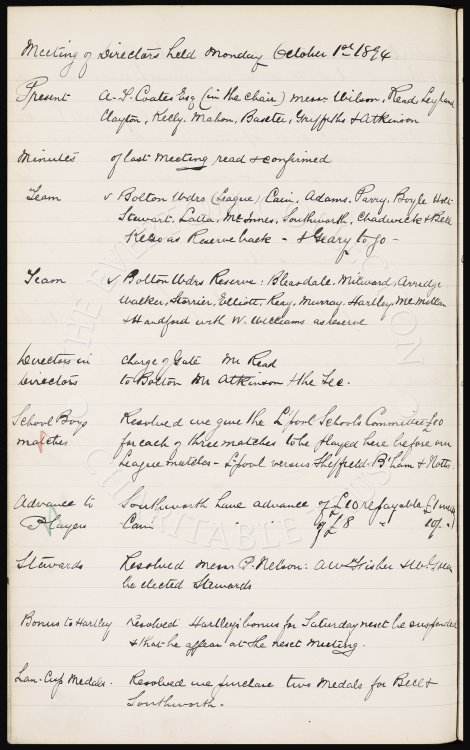 Meeting of Directors held Monday October 1st 1894
Present A. T. Coates Esq (in the chair) Messrs Wilson, Read, Leyland
Clayton, Kelly, Mahon, Baxter, Griffiths & Atkinson
Minutes of last meeting read & confirmed
Team v Bolton Wdrs (League) Cain, Adams, Parry, Boyle Holt
Stewart, Latta, McInnes, Southworth, Chadwick & Bell
Kelso as Reserve back - & Geary to go -
Team v Bolton Wdrs Reserve: Bleasdale. Milward, Arridge
Walker, Storrier, Elliott, Reay, Murray, Hartley, McMillan
& Handford with W. Williams as reserve
Directors in charge of Gate Mr Read
Directors to Bolton Mr Atkinson & the Sec.
School Boys Resolved we give the L'pool Schools Committee £10
matches for each of three matches to be played here before our
League matches - L'pool versus Sheffield. B'ham & Notts.
Advance to Southworth have advance of £10 repayable £1 weekly
Players Cain " " of £8 " 10/- "
Stewards Resolved Messrs P. Nelson: A W Fisher &
be elected Stewards
Bonus to Hartley Resolved Hartley's bonus for Saturday next be suspended
& that he appear at the next meeting.
Lan-Cup Medals. Resolved we purchase two medals for Bell &
Southworth.
THE EVERTON
CHARITABLE TRUST